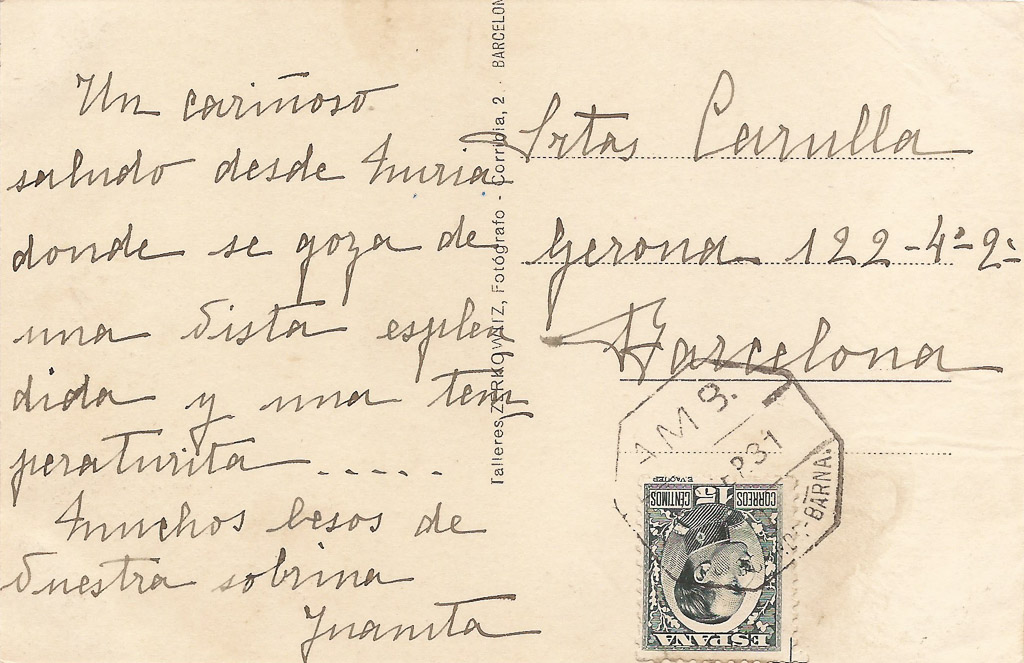 Un cariñoso
saludo desde Nuria
donde se goza de
una vista esplen
dida y una tem
peraturita .....
Muchos besos de
vuestra sobrina
Juanita
Talleres ZERKOWITZ, Fotógrafo - Corribia, 2 - BARCELON
Srtas Carulla
Gerona 122-4º-2ª
Barcelona
AMB.
EP.31
DE-BARNA.
E. VAQUER
CORREOS 15 CENTIMOS
ESPAÑA